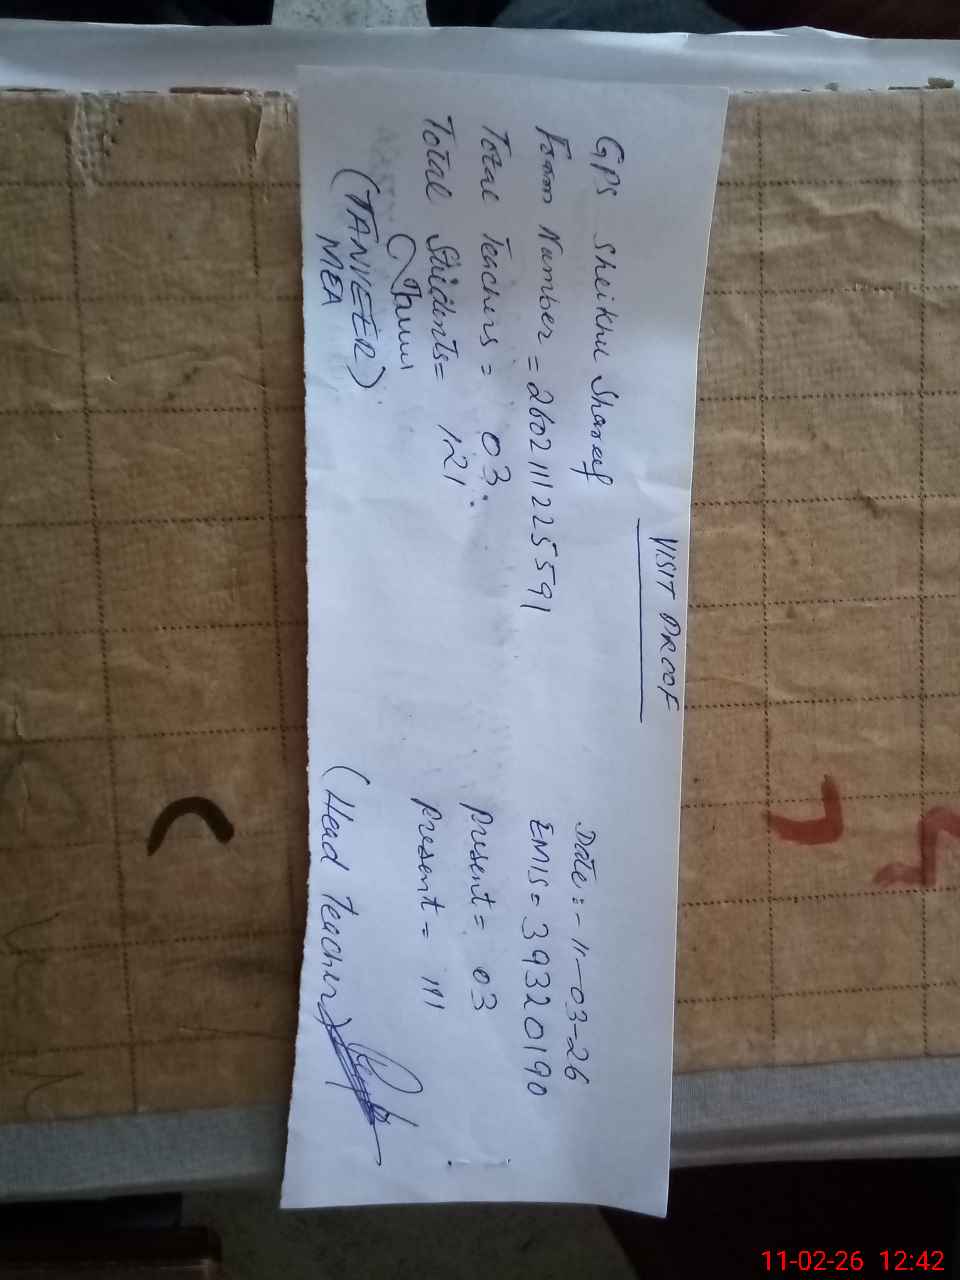 VISIT PROOF
GPS Sheikhu Shareef Date:- 11-03-26
Form Number = 2602111225591 EMIS = 39320190
Total Teachers = 03. Present = 03
Total Students = 121 Present = 111
(TANVEER) (Head Teacher)
MEA
11-02-26 12:42